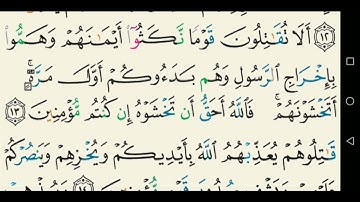 ١٢ أَلَا تُقَـٰتِلُونَ قَوْمًا نَّكَثُوٓا۟ أَيْمَـٰنَهُمْ وَهَمُّوا۟
بِإِخْرَاجِ ٱلرَّسُولِ وَهُم بَدَءُوكُمْ أَوَّلَ مَرَّةٍ
أَتَخْشَوْنَهُمْ ۚ فَٱللَّهُ أَحَقُّ أَن تَخْشَوْهُ إِن كُنتُم مُّؤْمِنِينَ ١٣
قَـٰتِلُوهُمْ يُعَذِّبْهُمُ ٱللَّهُ بِأَيْدِيكُمْ وَيُخْزِهِمْ وَيَنصُرْكُمْ